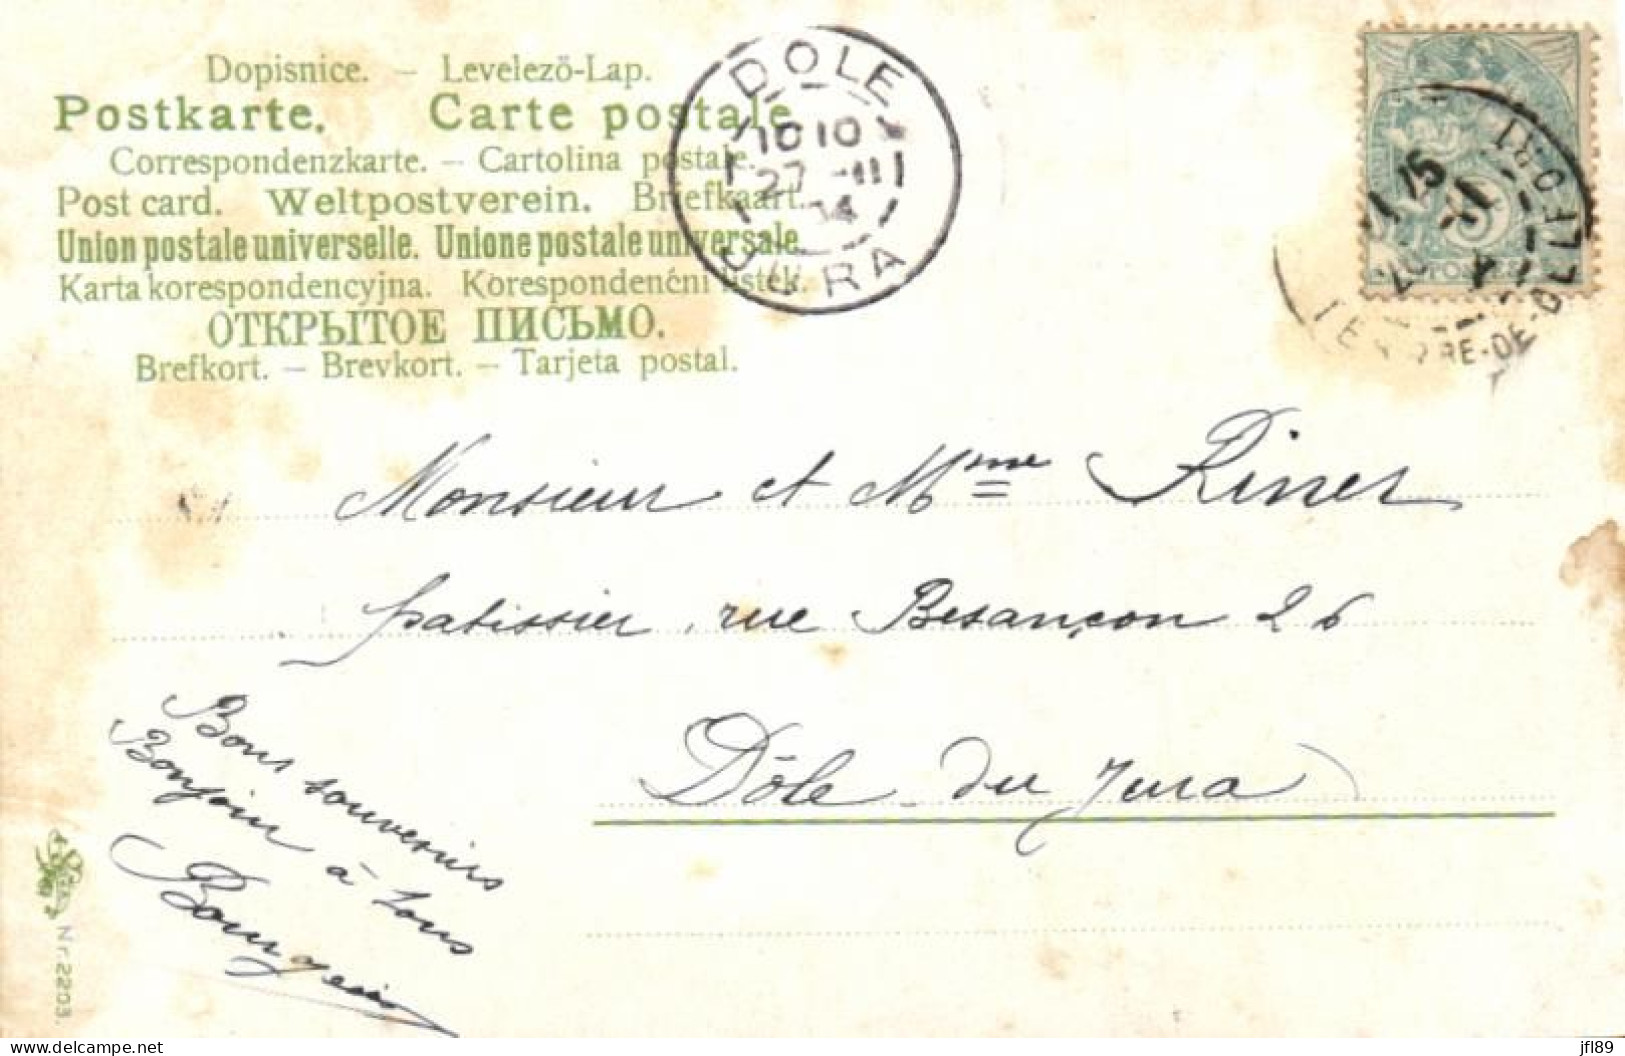 Dopisnice. – Levelező-Lap.
Postkarte. Carte postale.
Correspondenzkarte. – Cartolina postale.
Post card. Weltpostverein. Briefkaart.
Union postale universelle. Unione postale universale.
Karta korespondencyjna. Korespondenční listek.
ОТКРЫТОЕ ПИСЬМО.
Brefkort. – Brevkort. – Tarjeta postal.
DOLE
10 10
27 -11
JURA
Monsieur et Mme Riner
patissier, rue Besançon 26
Dôle du Jura
Bons souvenirs
Bonjour à tous
Nr. 2203.
jfl89
www.delcampe.net